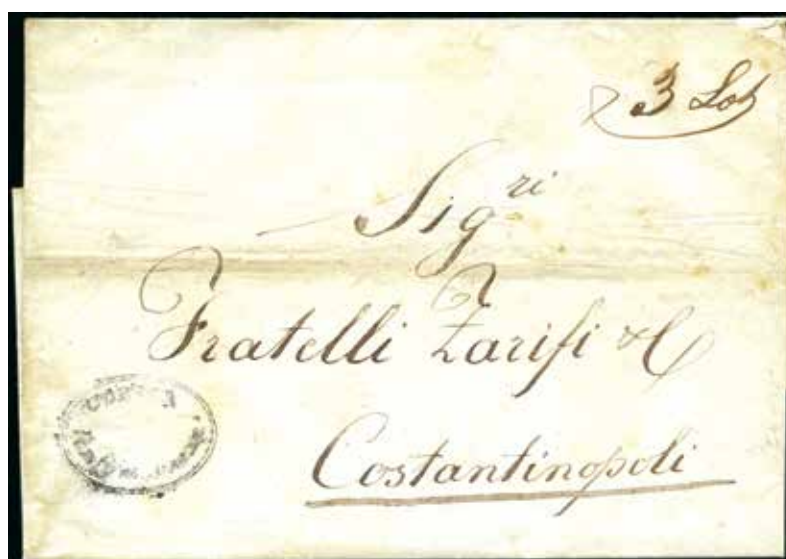 3 Lot
Sig.ri
Fratelli Zarifi & C
Costantinopoli